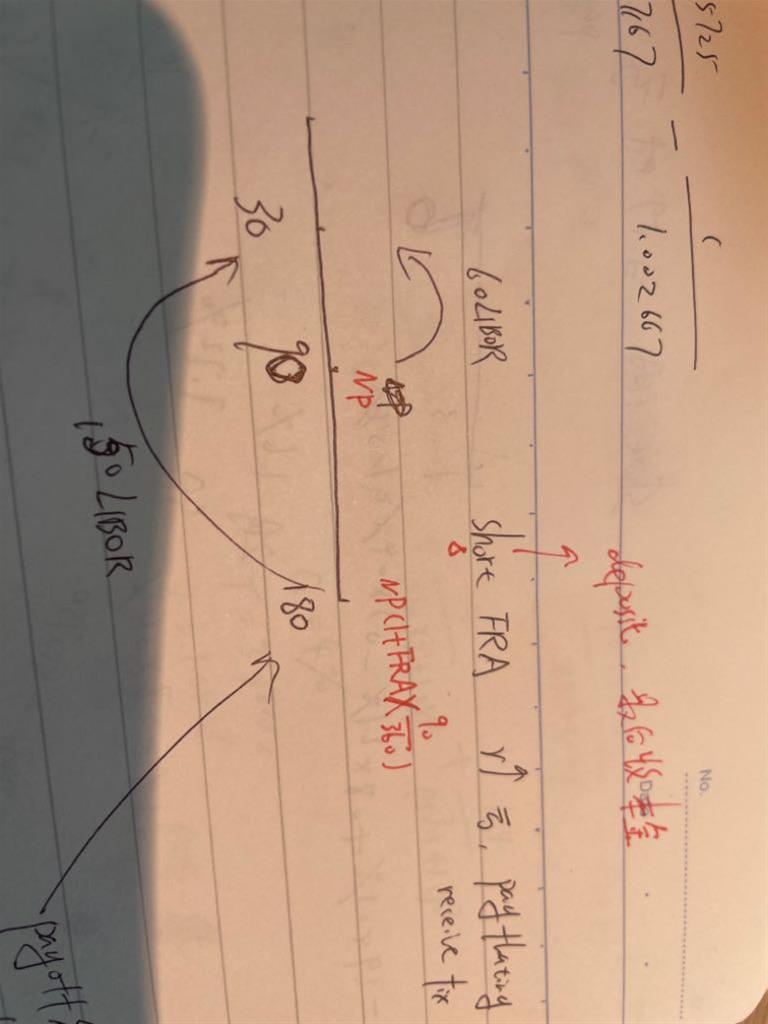 5725
7167 - 1.002667
No.
deposit, 最后收本金
60 LIBOR short FRA r↑亏, pay floating
receive fix
NP NP(1+FRA×90/360)
30 90 180
150 LIBOR
payoff